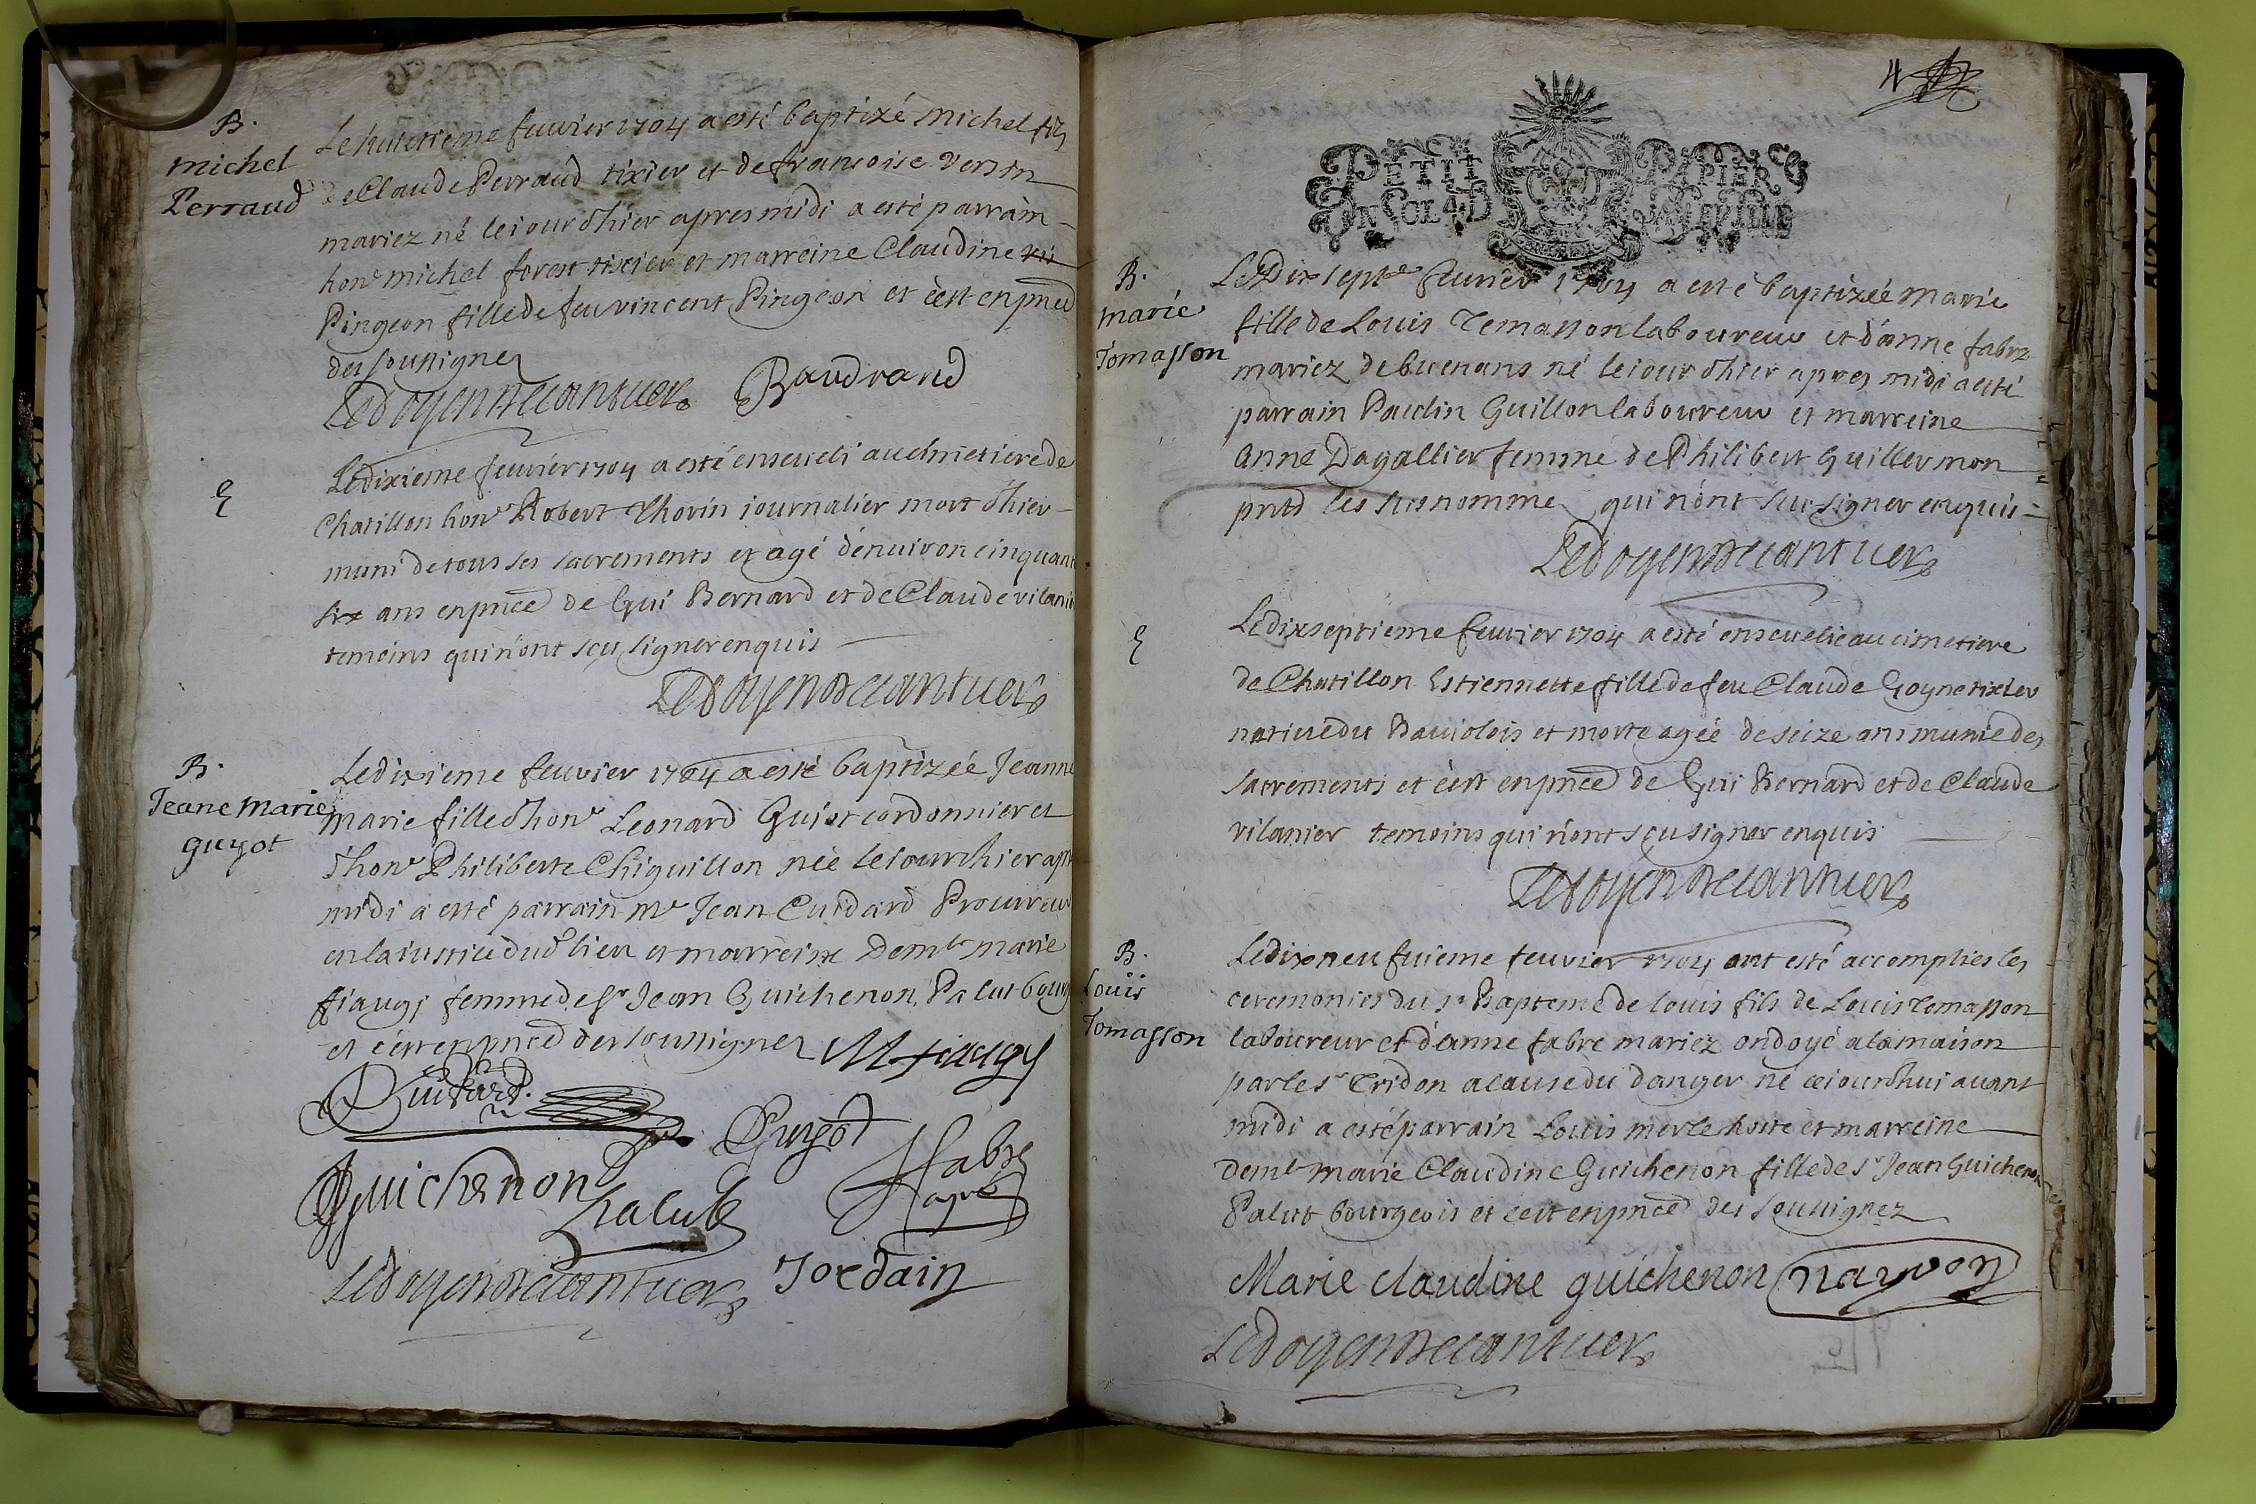 B.
Michel
Perraud
Le huictieme feuvier 1704 a esté baptizé Michel fils
de Claude Perraud tixier et de francoise
mariez né le iour d'hier apres midi a esté parrain
hon^e michel forest tixier et marreine Claudine
Pingeon fille de feu vincent Pingeon et c'est en pñce
des soussignez
Ledoyen Baudrand
E
Le dixieme feuvier 1704 a esté enseueli au cimetiere de
Chatillon hon^e Robert Thorin iournalier mort d'hier
muni de tous ses sacrements et agé d'enuiron cinquant
six ans en pñce de Gui Bernard et de Claude vilanie
temoins qui n'ont sçu signer enquis
Ledoyen
B.
Jeane Marie
guyot
Le dixieme feuvier 1704 a esté baptizée Jeanne
marie fille d'hon^e Leonard Guiot cordonnier et
d'hon^e Philiberte Chiquillon née le iour d'hier apr
midi a esté parrain m^e Jean Cuidard Procureur
en la iustice dud^t lieu et marreine Dem^lle marie
fiaugi femme de s^r Jean Guichenon Palut bourg
et c'est en pñce des soussignez M fiaugy
Guichenon Palut Guyot fabre
Ledoyen Jordain
4
PETIT PAPIER
B.
marie
Tomasson
Le Dix sept^e feuvier 1704 a esté baptizée marie
fille de Louis Temasson laboureur et d'anne fabre
mariez de buenans né le iour d'hier apres midi a esté
parrain Paulin Guillon laboureur et marreine
Anne Dagallier femme de Philibert Guillermon
pnts les susnommez qui n'ont sçu signer enquis
Ledoyen
E
Le dixseptieme feuvier 1704 a esté enseuelie au cimetiere
de Chatillon Estiennette fille de feu Claude Goyne tixier
natiue du Bauiolois et morte agée de seize ans munie des
sacrements et c'est en pñce de Gui Bernard et de Claude
vilanier temoins qui n'ont sçu signer enquis
Ledoyen
B.
Louis
Tomasson
Le dixneufuieme feuvier 1704 ont esté accomplies les
ceremonies du s^t Bapteme de louis fils de Louis Temasson
laboureur et d'anne fabre mariez ondoyé a la maison
par le s^r Tridon a cause du danger né ce iourdhui auant
midi a esté parrain Louis merle hoste et marreine
Dem^lle marie Claudine Guichenon fille de s^r Jean Guichenon
Palut bourgeois et c'est en pñce des soussignez
Marie claudine guichenon
Ledoyen